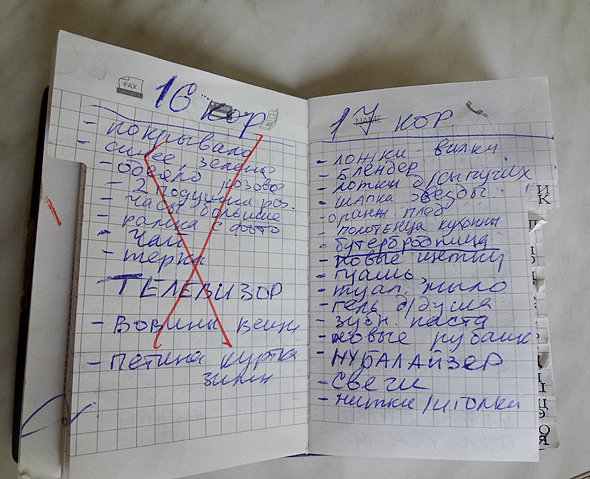 FAX
16 кор
- покрывало
синее, зелёное
- одеяло розовое
- 2 подушки роз.
- часы большие
- рамка с фото
- чай
- тёрка
- ТЕЛЕВИЗОР
- Вовины вещи
- Петина куртка
зимн
NAME
17 кор.
- ложки вилки
- Блендер
- лотки д/сыпучих
- шапка звезды
оранж. плед
- полотенца кухонны
- бутербродница
- новые
- гуашь
- туал. мыло
- гель д/душа
- зубн. паста
- новые рубашк
- НУРАЛАЙЗЕР
- Свечи
- нитки/иголки
И
К
Я